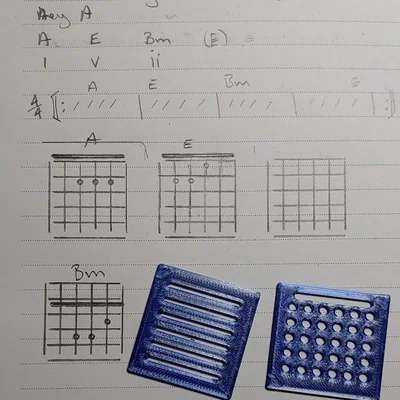 Key A
A E Bm (E)
I V ii
A E Bm E
4/4 [: //// | //// | //// | //// :]
A E
Bm